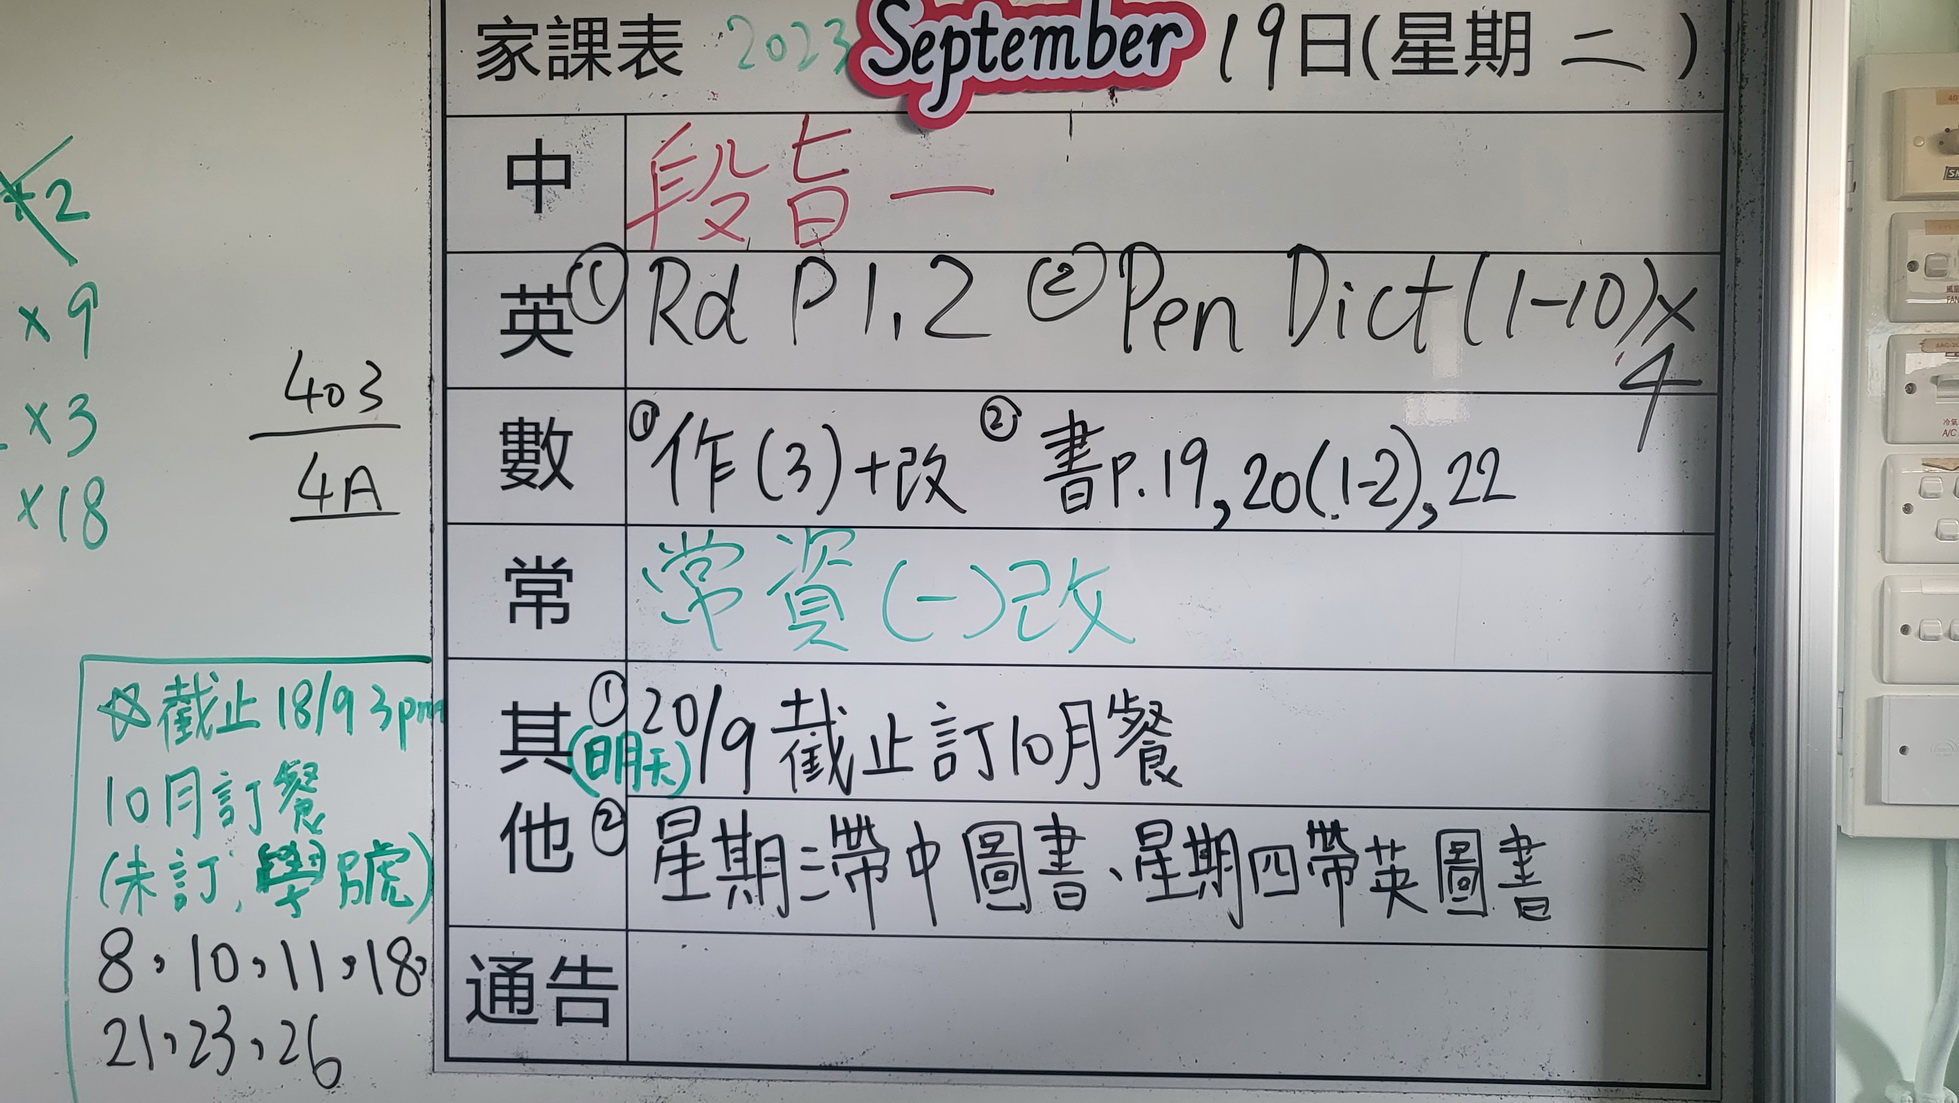 家課表 2023 September 19日(星期二)
中 段旨一
英 ① Rd P1,2 ② Pen Dict(1-10)x4
數 ①作(3)+改 ②書P.19,20(1-2),22
常 常資(一)改
其他 ①20/9截止訂10月餐
(明天)
②星期三帶中圖書、星期四帶英圖書
通告
2
x9
x3
x18
403
4A
☆截止18/9 3pm
10月訂餐
(未訂,學號)
8,10,11,18,
21,23,26